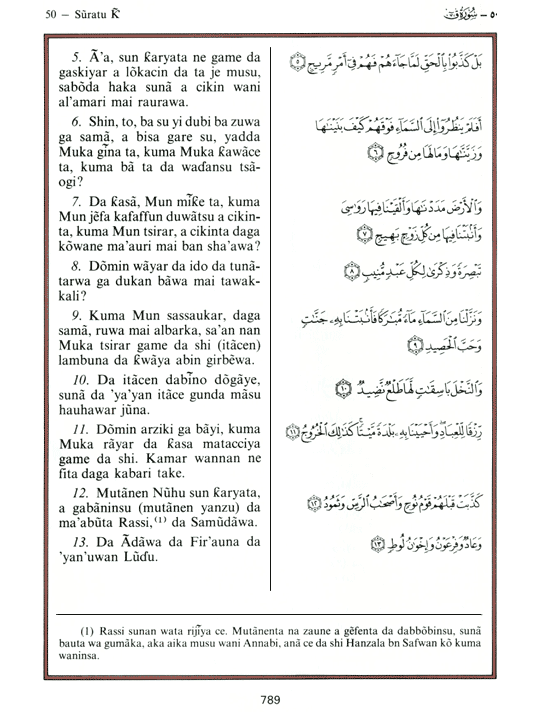 50 — Sũratu Ƙ̃
٥٠ — سُورَةُ ق
5. Ã'a, sun ƙaryata ne game da
gaskiyar a lõkacin da ta je musu,
sabõda haka sunã a cikin wani
al'amari mai raurawa.
6. Shin, to, ba su yi dubi ba zuwa
ga samã, a bisa gare su, yadda
Muka gĩna ta, kuma Muka ƙawãce
ta, kuma bã ta da waɗansu tsã-
ogi?
7. Da ƙasã, Mun mĩƙe ta, kuma
Mun jẽfa kafaffun duwãtsu a cikin-
ta, kuma Mun tsirar, a cikinta daga
kõwane ma'auri mai ban sha'awa?
8. Dõmin wãyar da ido da tunã-
tarwa ga dukan bãwa mai tawak-
kali?
9. Kuma Mun sassaukar, daga
samã, ruwa mai albarka, sa'an nan
Muka tsirar game da shi (itãcen)
lambuna da ƙwãya abin girbẽwa.
10. Da itãcen dabĩno dõgãye,
sunã da 'ya'yan itãce gunda mãsu
hauhawar jũna.
11. Dõmin arziki ga bãyi, kuma
Muka rãyar da ƙasa matacciya
game da shi. Kamar wannan ne
fita daga kabari take.
12. Mutãnen Nũhu sun ƙaryata,
a gabãninsu (mutãnen yanzu) da
ma'abũta Rassi,⁽¹⁾ da Samũdãwa.
13. Da Ãdãwa da Fir'auna da
'yan'uwan Lũɗu.
بَلْ كَذَّبُوا۟ بِٱلْحَقِّ لَمَّا جَآءَهُمْ فَهُمْ فِىٓ أَمْرٍ مَّرِيجٍ ٥
أَفَلَمْ يَنظُرُوٓا۟ إِلَى ٱلسَّمَآءِ فَوْقَهُمْ كَيْفَ بَنَيْنَٰهَا
وَزَيَّنَّٰهَا وَمَا لَهَا مِن فُرُوجٍ ٦
وَٱلْأَرْضَ مَدَدْنَٰهَا وَأَلْقَيْنَا فِيهَا رَوَٰسِىَ
وَأَنۢبَتْنَا فِيهَا مِن كُلِّ زَوْجٍۭ بَهِيجٍ ٧
تَبْصِرَةً وَذِكْرَىٰ لِكُلِّ عَبْدٍ مُّنِيبٍ ٨
وَنَزَّلْنَا مِنَ ٱلسَّمَآءِ مَآءً مُّبَٰرَكًا فَأَنۢبَتْنَا بِهِۦ جَنَّٰتٍ
وَحَبَّ ٱلْحَصِيدِ ٩
وَٱلنَّخْلَ بَاسِقَٰتٍ لَّهَا طَلْعٌ نَّضِيدٌ ١٠
رِّزْقًا لِّلْعِبَادِ وَأَحْيَيْنَا بِهِۦ بَلْدَةً مَّيْتًا كَذَٰلِكَ ٱلْخُرُوجُ ١١
كَذَّبَتْ قَبْلَهُمْ قَوْمُ نُوحٍ وَأَصْحَٰبُ ٱلرَّسِّ وَثَمُودُ ١٢
وَعَادٌ وَفِرْعَوْنُ وَإِخْوَٰنُ لُوطٍ ١٣
(1) Rassi sunan wata rijĩya ce. Mutãnenta na zaune a gẽfenta da dabbõbinsu, sunã
bauta wa gumãka, aka aika musu wani Annabi, anã ce da shi Hanzala bn Safwan kõ kuma
waninsa.
789